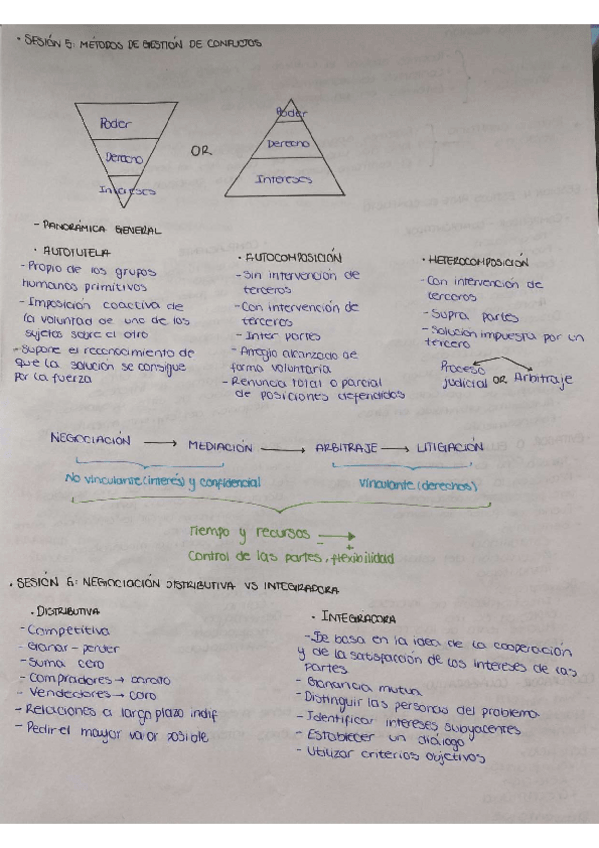 · SESIÓN 5: MÉTODOS DE GESTIÓN DE CONFLICTOS
Poder
Derecho
Intereses
OR
Poder
Derecho
Intereses
- PANORÁMICA GENERAL
· AUTOTUTELA
- Propio de los grupos
humanos primitivos
- Imposición coactiva de
la voluntad de uno de los
sujetos sobre el otro
- Supone el reconocimiento de
que la solución se consigue
por la fuerza
· AUTOCOMPOSICIÓN
- Sin intervención de
terceros
- Con intervención de
terceros
- Inter partes
- Arreglo alcanzado de
forma voluntaria
- Renuncia total o parcial
de posiciones defendidas
· HETEROCOMPOSICIÓN
- Con intervención de
terceros
- Supra partes
- Solución impuesta por un
tercero
Proceso
judicial OR Arbitraje
NEGOCIACIÓN → MEDIACIÓN → ARBITRAJE → LITIGACIÓN
No vinculante (interés) y confidencial
Vinculante (derechos)
Tiempo y recursos - → +
Control de las partes, flexibilidad
· SESIÓN 6: NEGOCIACIÓN DISTRIBUTIVA VS INTEGRADORA
· DISTRIBUTIVA
- Competitiva
- Ganar - perder
- Suma cero
- Compradores → barato
- Vendedores → caro
- Relaciones a largo plazo indif
- Pedir el mayor valor posible
· INTEGRADORA
- De basa en la idea de la cooperación
y de la satisfacción de los intereses de las
partes
- Ganancia mutua
- Distinguir las personas del problema
- Identificar intereses subyacentes
- Establecer un diálogo
- Utilizar criterios objetivos